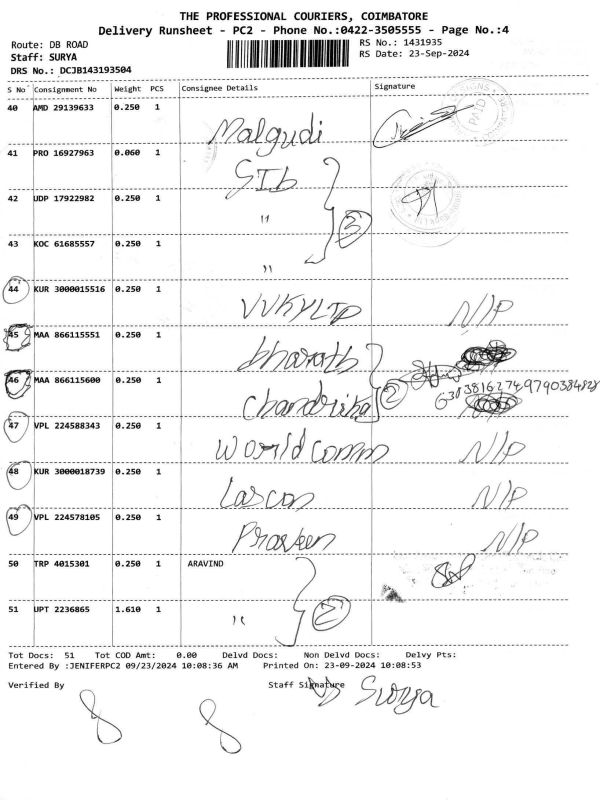 THE PROFESSIONAL COURIERS, COIMBATORE
Delivery Runsheet - PC2 - Phone No.:0422-3505555 - Page No.:4
Route: DB ROAD RS No.: 1431935
Staff: SURYA RS Date: 23-Sep-2024
DRS No.: DCJB143193504
S No Consignment No Weight PCS Consignee Details Signature
40 AMD 29139633 0.250 1
Malgudi
PAID
41 PRO 16927963 0.060 1
STb
42 UDP 17922982 0.250 1
" 3
43 KOC 61685557 0.250 1
"
44 KUR 3000015516 0.250 1
VVKYLTD N/P
45 MAA 866115551 0.250 1
bharath
46 MAA 866115600 0.250 1
Chandrika 2
47 VPL 224588343 0.250 1
World comm N/P
48 KUR 3000018739 0.250 1
Lascon N/P
49 VPL 224578105 0.250 1
Praveen N/P
50 TRP 4015301 0.250 1 ARAVIND
51 UPT 2236865 1.610 1
" 2
Tot Docs: 51 Tot COD Amt: 0.00 Delvd Docs: Non Delvd Docs: Delvy Pts:
Entered By :JENIFERPC2 09/23/2024 10:08:36 AM Printed On: 23-09-2024 10:08:53
Verified By Staff Signature Surya